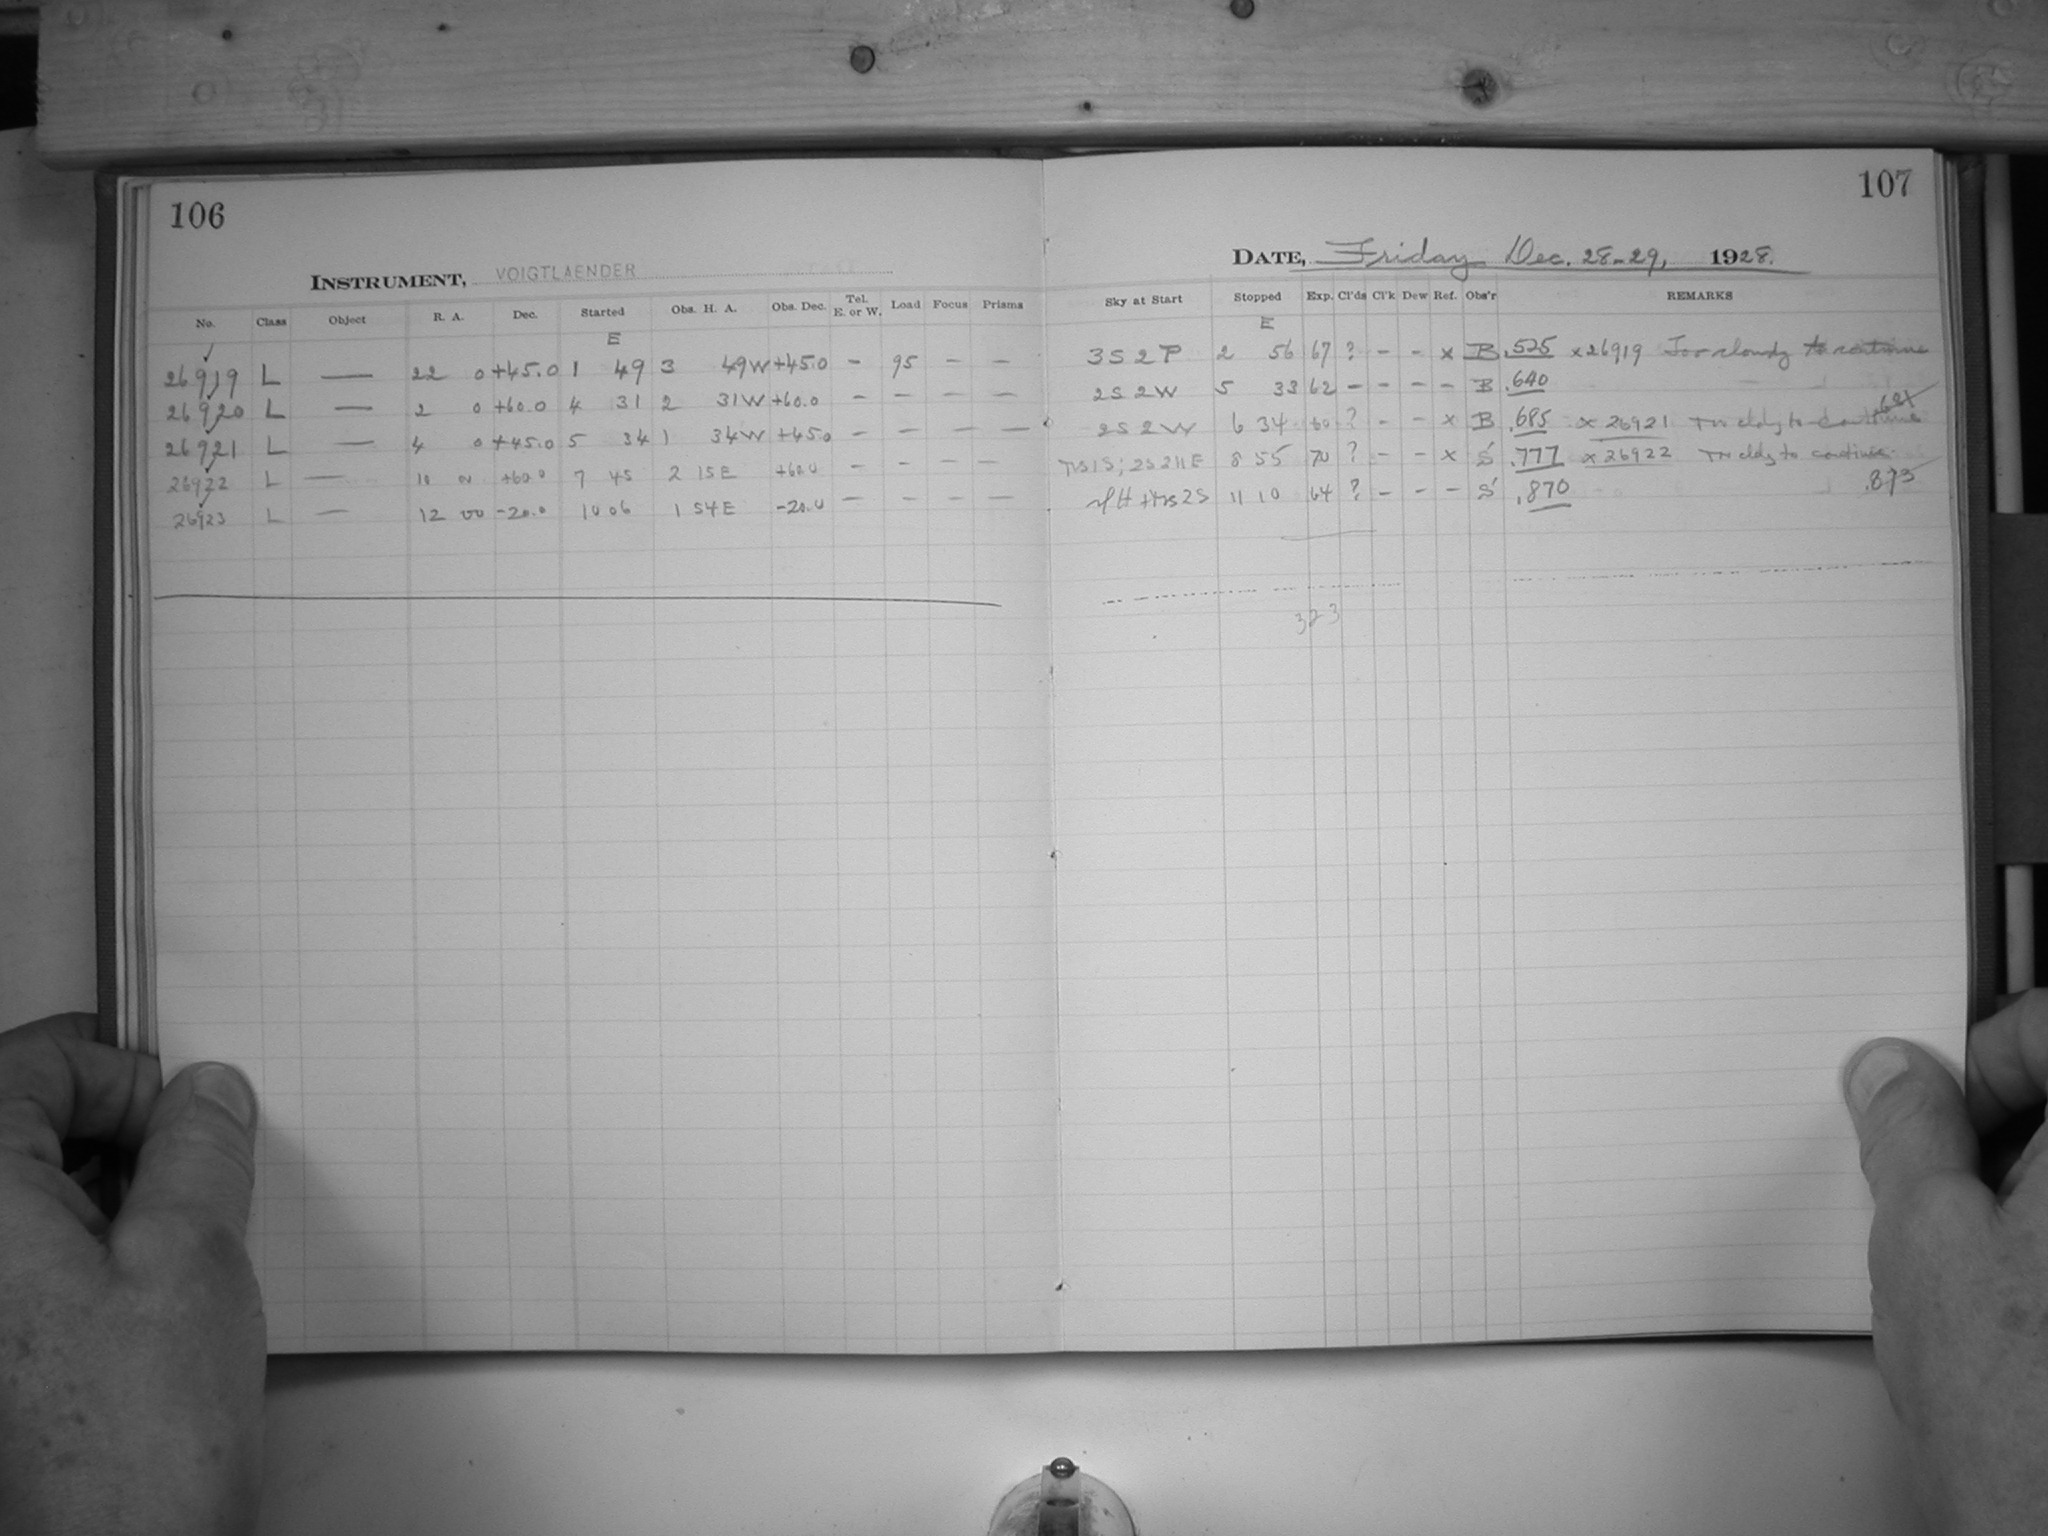 106
INSTRUMENT, VOIGTLAENDER
No. Class Object R. A. Dec. Started Obs. H. A. Obs. Dec. Tel. E. or W. Load Focus Prisms
E
26919 L — 22 0 +45.0 1 49 3 49W +45.0 - 95 - -
26920 L — 2 0 +60.0 4 31 2 31W +60.0 - - - -
26921 L — 4 0 +45.0 5 34 1 34W +45.0 - - - -
26922 L — 10 00 +60.0 7 45 2 15E +60.0 - - - -
26923 L — 12 00 -20.0 10 06 1 54E -20.0 - - - -
107
DATE, Friday Dec. 28-29, 1928.
Sky at Start Stopped Exp. Cl'ds Cl'k Dew Ref. Obs'r REMARKS
E
3S 2P 2 56 67 ? - - x B .525 x26919 Too cloudy to continue
2S 2W 5 33 62 - - - - B .640
2S 2W 6 34 60 ? - - x B .685 x 26921 Too cldy to continue
8 55 70 ? - - x S .777 x 26922 Too cldy to continue.
11 10 64 ? - - - S .870 .873
323